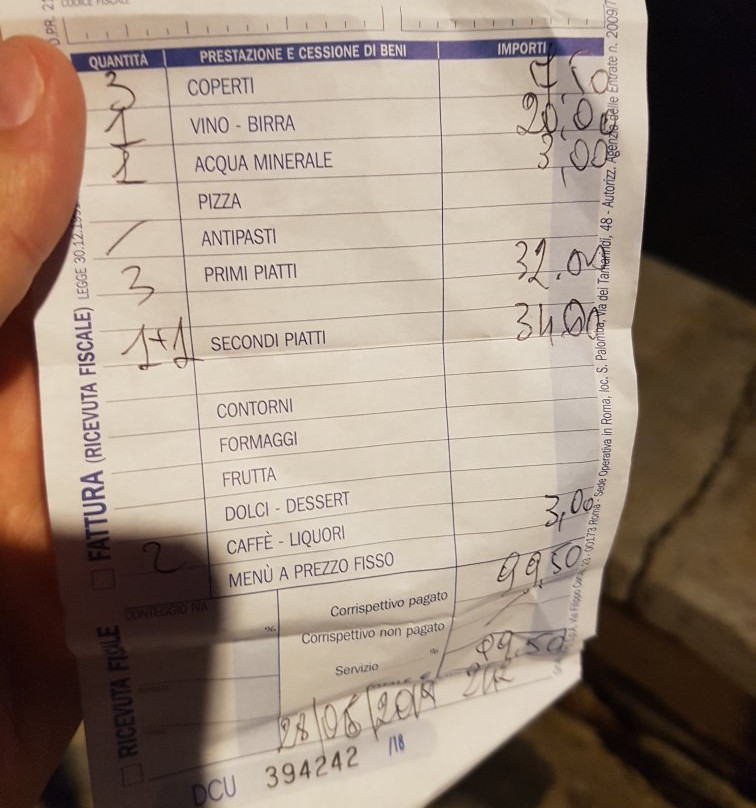 QUANTITÀ PRESTAZIONE E CESSIONE DI BENI IMPORTI
3 COPERTI 7,50
1 VINO - BIRRA 20,00
1 ACQUA MINERALE 3,00
PIZZA
/ ANTIPASTI
3 PRIMI PIATTI 32.00
1+1 SECONDI PIATTI 34,00
CONTORNI
FORMAGGI
FRUTTA
DOLCI - DESSERT
2 CAFFÈ - LIQUORI 3,00
MENÙ A PREZZO FISSO 99,50
CONTEGGIO IVA
%
Corrispettivo pagato
Corrispettivo non pagato
Servizio % 99,50
28/06/2018
DCU 394242 /18
FATTURA (RICEVUTA FISCALE) LEGGE 30.12.
RICEVUTA FISCALE
48 - Autorizz. Agenzia delle Entrate n. 2009/
00173 Roma - Sede Operativa in Roma, loc. S. Palomba, Via dei Tamarindi,